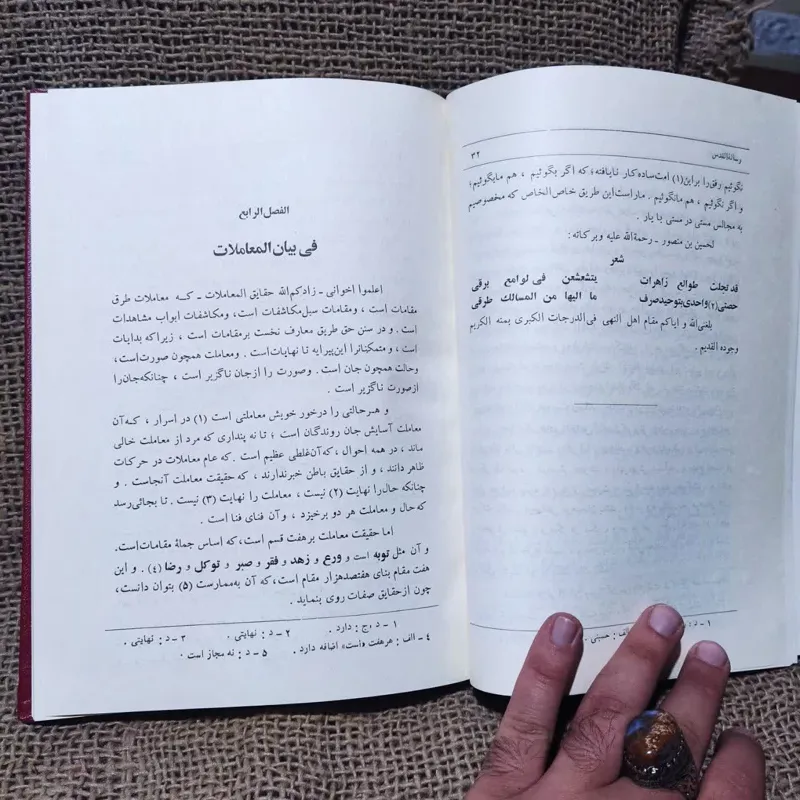 رسالةالقدس ۳۲
نگوئیم رفق را براین(۱) امت ساده کار نایافته؛ که اگر بگوئیم ، هم مابگوئیم؛
و اگر نگوئیم ، هم مانگوئیم . ماراست این طریق خاص الخاص که مخصوصیم
به مجالس مستی در مستی با یار .
لحسین بن منصور ـ رحمةالله علیه وبرکاته:
شعر
قد تجلت طوالع زاهرات یتشعشعن فی لوامع برقی
حصنی(۲)واحدی بتوحید صرف ما الیها من المسالك طرقی
بلغنی الله و ایاکم مقام اهل النهی فی الدرجات الکبری بمنه الکریم
وجوده القدیم .
۱ ـ د :
الف : حسبنی .
الفصل الرابع
فی بیان المعاملات
اعلموا اخوانی ـ زادکم الله حقایق المعاملات ـ کـه معاملات طرق
مقامات است ، ومقامات سبل مکاشفات است، ومکاشفات ابواب مشاهدات
است . و در سنن حق طریق معارف نخست برمقامات است ، زیراکه بدایات
است ، و متمکنانرا این پیرایه تا نهایات است. ومعاملت همچون صورت است،
وحالت همچون جان است . وصورت را از جان ناگزیر است ، چنانکه جان را
ازصورت ناگزیر است .
و هـر حالتی را درخور خویش معاملتی است (۱) در اسرار ، کـه آن
معاملت آسایش جان روندگان است ؛ تا نه پنداری که مرد از معاملت خالی
ماند ، در همه احوال ، که آن غلطی عظیم است . که عام معاملات در حرکات
ظاهر دانند ، و از حقایق باطن خبر ندارند ، که حقیقت معاملت آنجاست . و
چنانکه حال را نهایت (۲) نیست ، معاملت را نهایت (۳) نیست . تا بجائی رسد
که حال و معاملت هر دو برخیزد ، و آن فنای فنا است .
اما حقیقت معاملت برهفت قسم است، که اساس جملهٔ مقامات است.
و آن مثل توبه است و ورع و زهد و فقر و صبر و توکل و رضا (۴) . و این
هفت مقام بنای هفتصدهزار مقام است،که آن به ممارست (۵) بتوان دانست،
چون ازحقایق صفات روی بنماید .
۱ ـ د ،ج : دارد . ۲ ـ د : نهایتی . ۳ ـ د : نهایتی .
۴ ـ الف : هرهفت «است» اضافه دارد . ۵ ـ د : نه مجاز است .